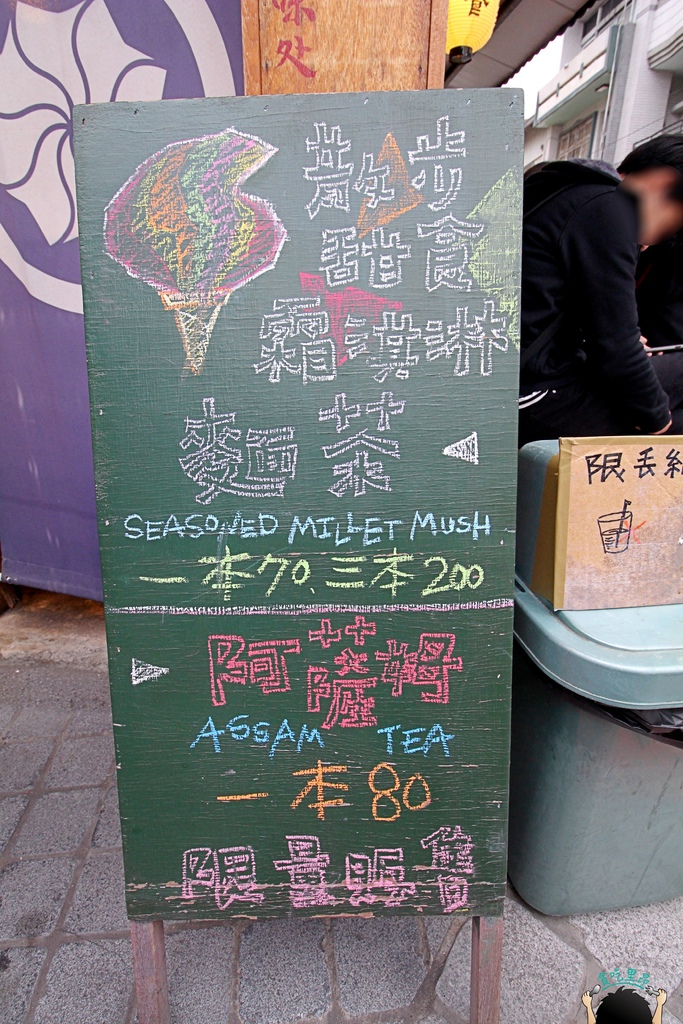 味处
散步
甜食
霜淇淋
麵茶
SEASONED MILLET MUSH
一本70、三本200
阿薩姆
ASSAM TEA
一本80
限量販售
限丟紙